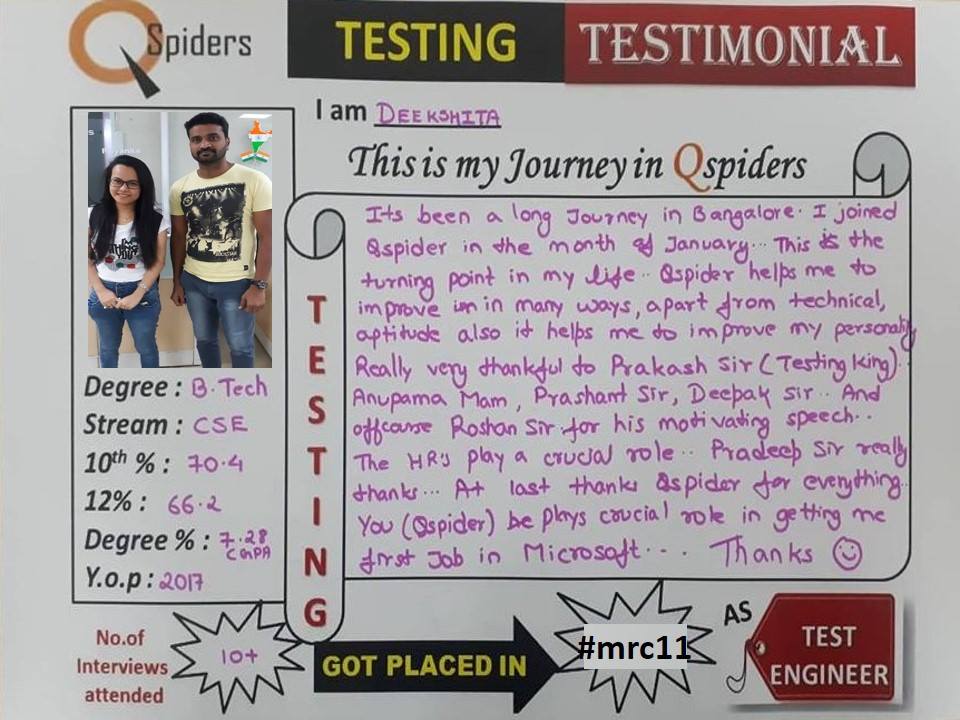 QSpiders
TESTING TESTIMONIAL
I am DEEKSHITA
This is my Journey in Qspiders
Its been a long Journey in Bangalore. I joined
Qspider in the month of January.. This is the
turning point in my life.. Qspider helps me to
improve in many ways, apart from technical,
aptitude also it helps me to improve my personality
Really very thankful to Prakash Sir (Testing King)..
Anupama Mam, Prashant Sir, Deepak Sir.. And
offcourse Roshan Sir for his motivating speech..
The HR's play a crucial role.. Pradeep Sir really
thanks... At last thanks Qspider for everything..
You (Qspider) be plays crucial role in getting me
first Job in Microsoft... Thanks ☺
TESTING
Degree : B.Tech
Stream : CSE
10th % : 70.4
12% : 66.2
Degree % : 7.28
CGPA
Y.o.p : 2017
No.of
Interviews
attended
10+
GOT PLACED IN
#mrc11
AS
TEST
ENGINEER